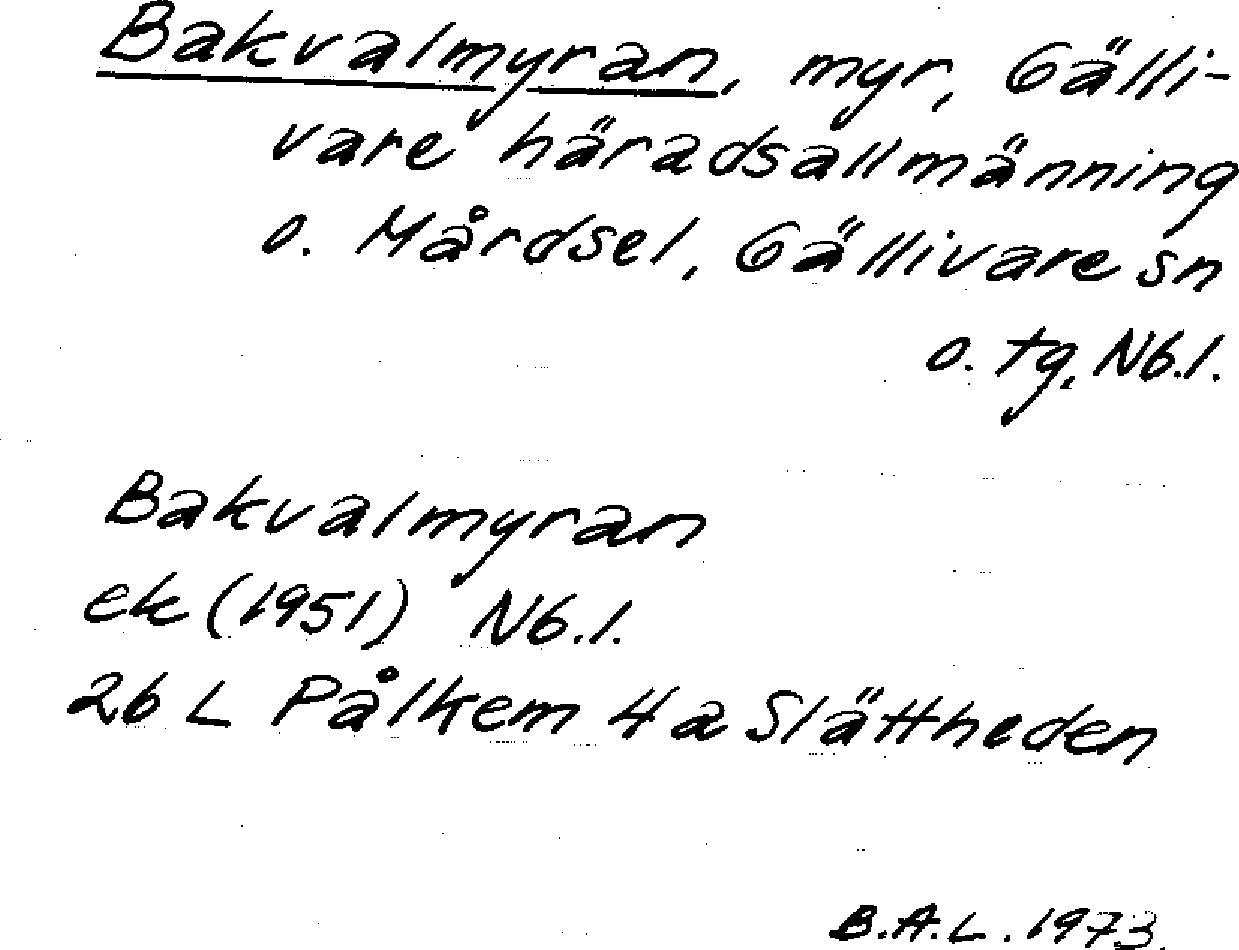 Bakvalmyran, myr, Gälli-
vare häradsallmänning
o. Mårdsel, Gällivare sn
o. tg, Nb.l.
Bakvalmyran
ek (1951) Nb.l.
26 L Pålkem 4a Slättheden
B.A.L. 1973